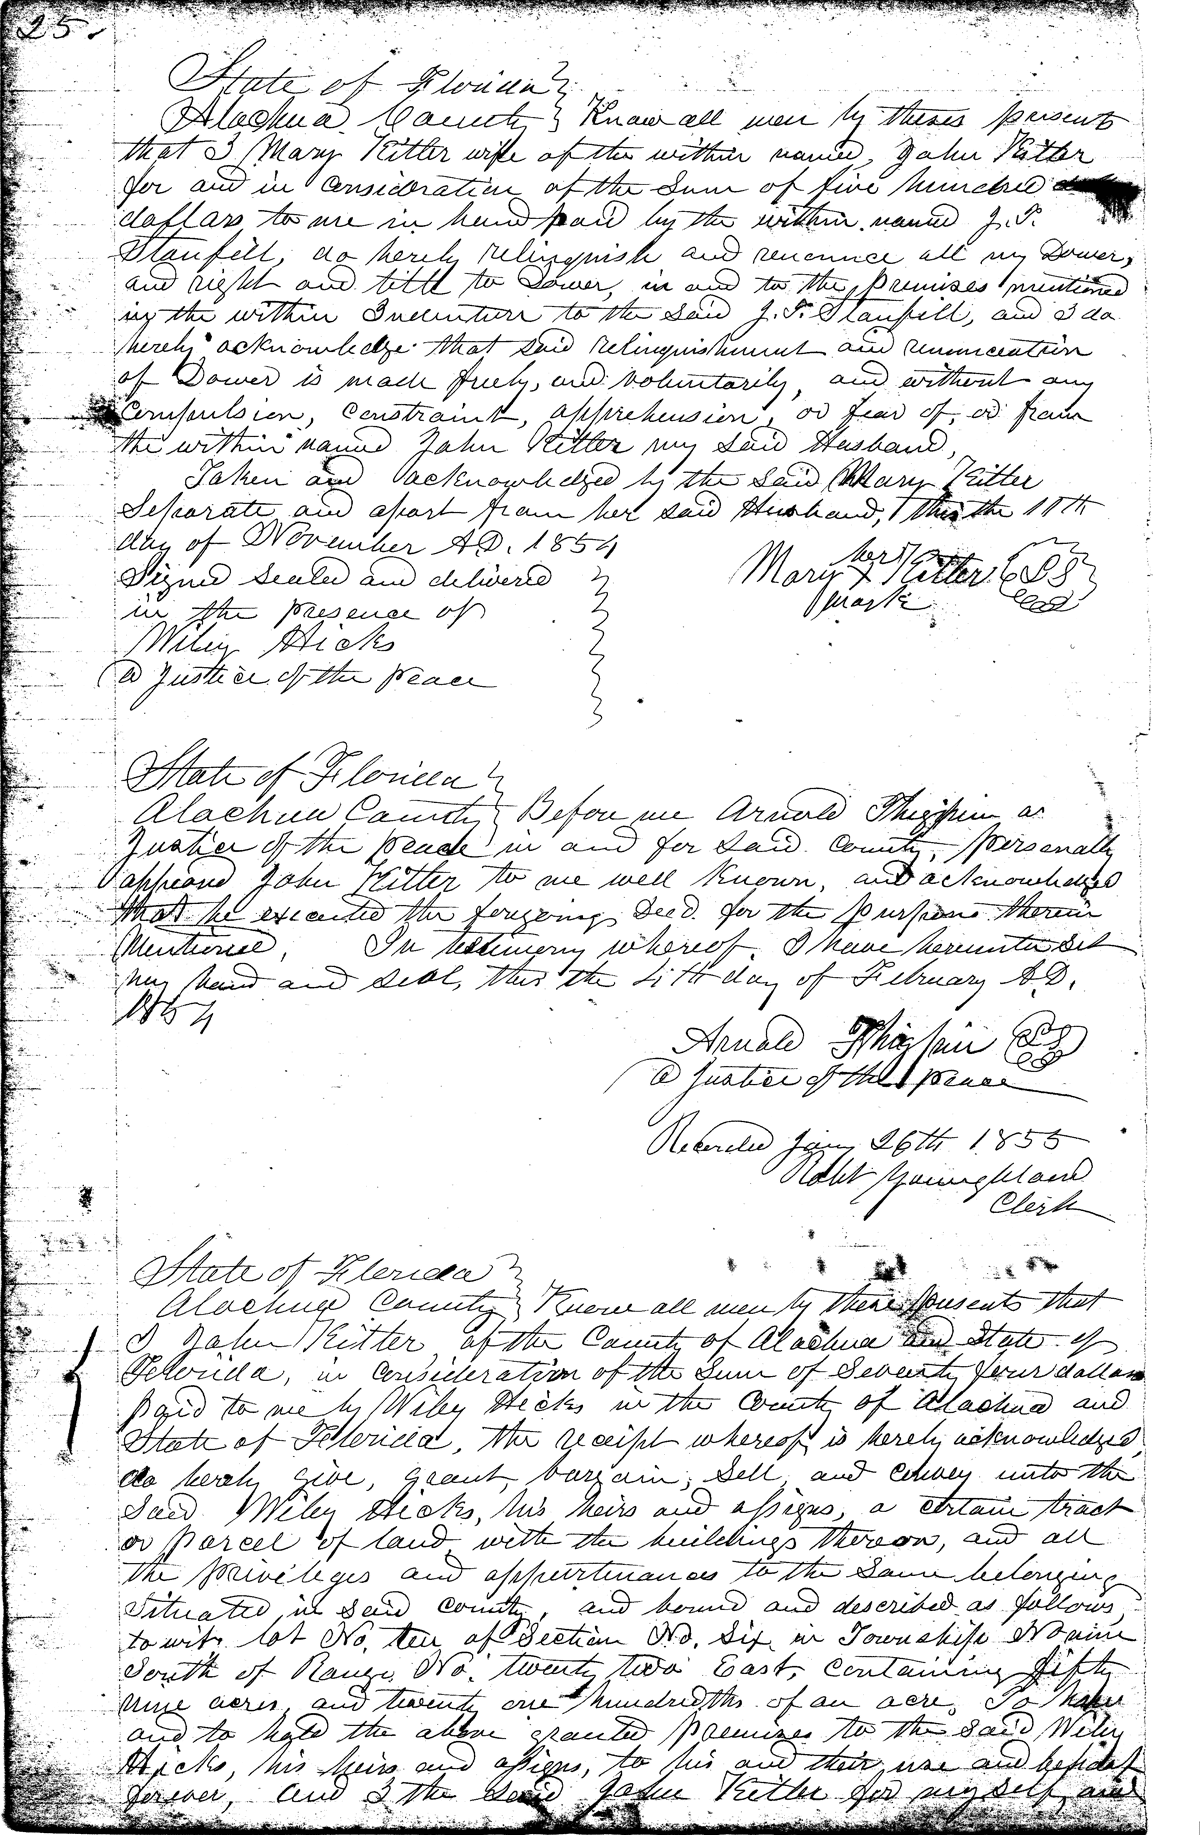 25.
State of Florida }
Alachua County } Know all men by theses presents
that I Mary Kitler wife of the within named, John Kitler
for and in consideration of the Sum of five hundred
dollars to me in hand paid by the within named J. T.
Stanfill, do hereby relinquish and renounce all my Dower,
and right and title to Dower, in and to the premises mentioned
in the within Indenture to the said J. T. Stanfill, and I do
hereby acknowledge that said relinquishment and renunceation
of Dower is made freely, and voluntarily, and without any
Compulsion, constraint, apprehension, or fear of, or from
the within named John Kitler my said Husband,
Taken and acknowledged by the said Mary Kitler
Seperate and apart from her said Husband, this the 11th
day of November A.D. 1854
her
Mary X Kitler LS
mark
Signed Sealed and delivered }
in the presence of
Wiley Hicks
a Justice of the peace
State of Florida }
Alachua County } Before me Arnold Thigpin a
Justice of the peace in and for said County, personally
appeard John Kitler to me well known, and acknowledged
that he executed the foregoing Deed for the purpose therein
Mentioned, In testimony whereof I have hereunto set
my hand and seal, this the 4th day of February A.D.
1854
Arnold Thigpin LS
a Justice of the peace
Recorded Jany 26th 1855
Robt Youngblood
Clerk
State of Florida }
Alachua County } Know all men by these presents that
I John Kitler of the County of Alachua and State of
Florida, in consideration of the Sum of Seventy four dollars
paid to me by Wiley Hicks in the County of Alachua and
State of Florida, the receipt whereof is hereby acknowledged,
do hereby give, grant, bargain, Sell, and convey unto the
Said Wiley Hicks, his heirs and assigns, a certain tract
or parcel of land with the buildings thereon, and all
the privileges and appurtenances to the Same belonging
Situated in said county, and bound and described as follows,
to wit. lot No. ten of Section No. Six in Township No nine
South of Range No. twenty two East, containing fifty
nine acres, and twenty one hundredths of an acre, To have
and to hold the above granted premises to the said Wiley
Hicks, his heirs and assigns, to his and their use and behoof
forever, and I the said John Kitler for myself, and